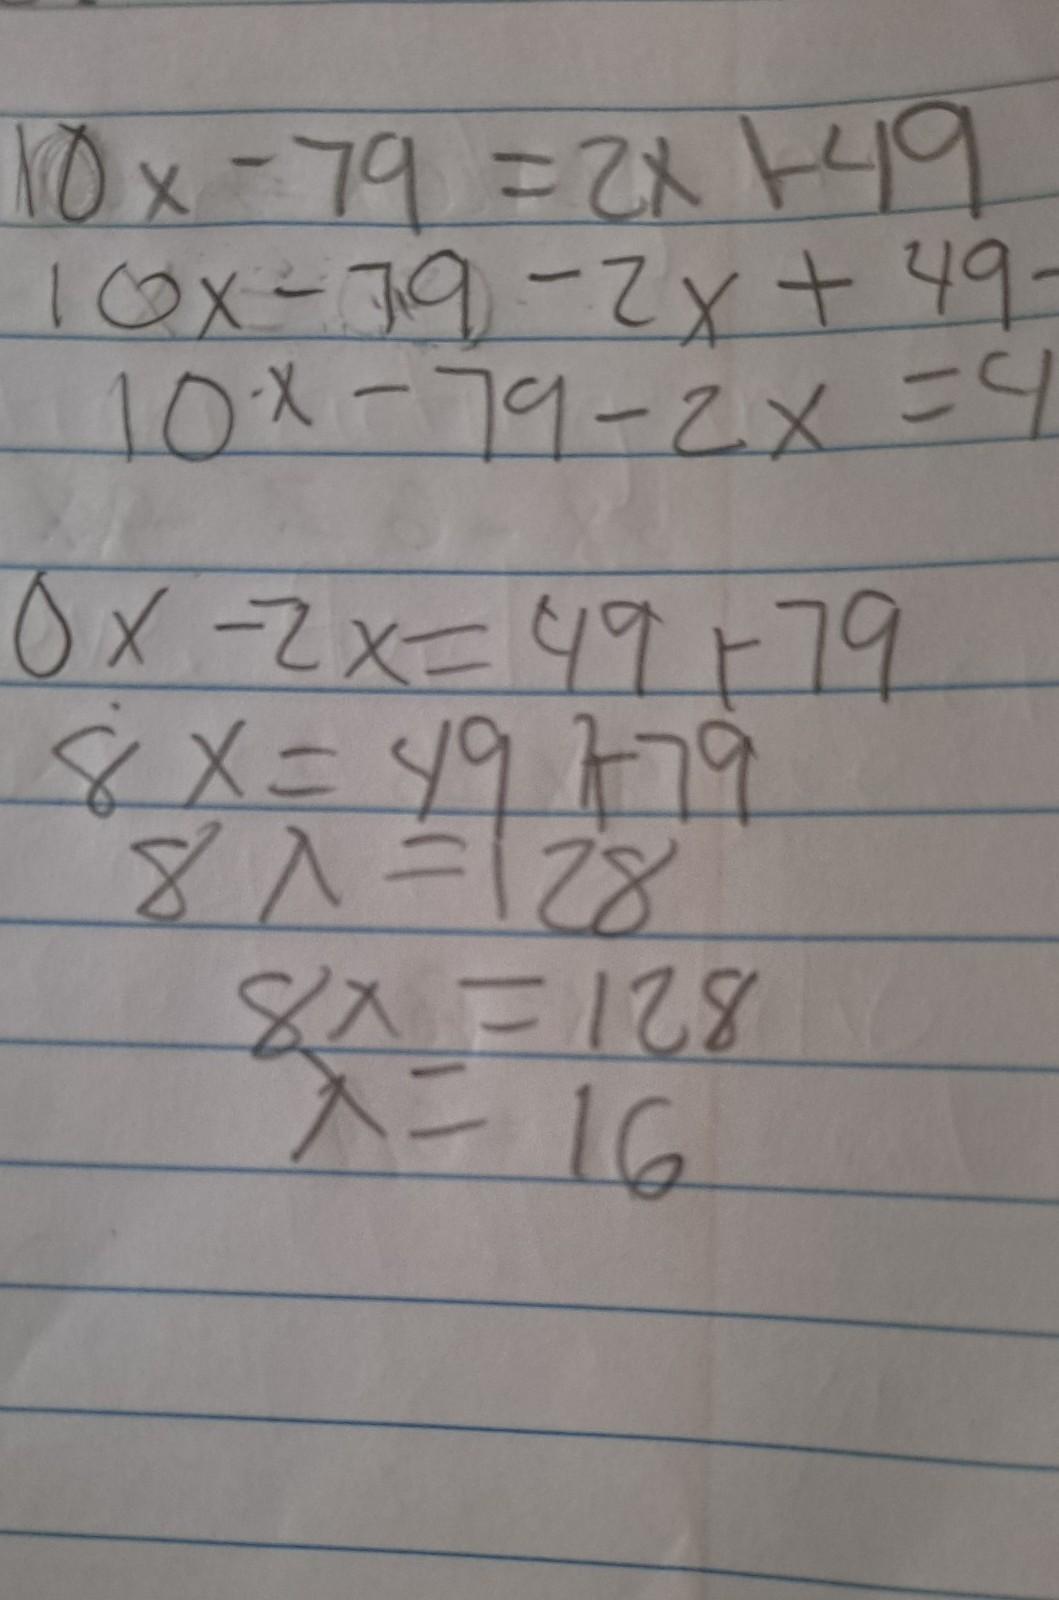 10x - 79 = 2x + 49
10x - 79 - 2x + 49 -
10x - 79 - 2x = 4
0x - 2x = 49 + 79
8x = 49 + 79
8x = 128
8x = 128
x = 16